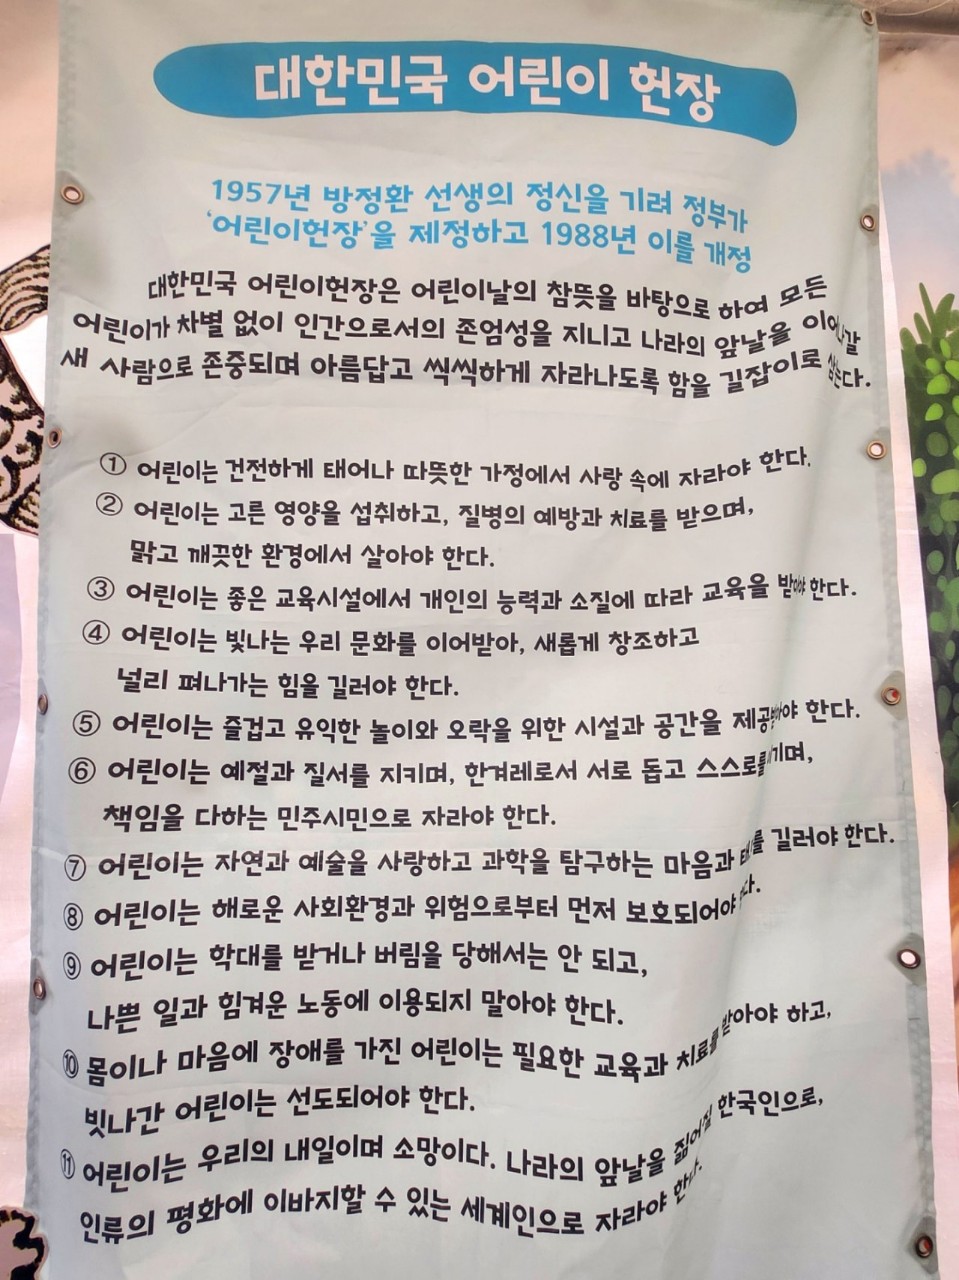 대한민국 어린이 헌장
1957년 방정환 선생의 정신을 기려 정부가
'어린이헌장'을 제정하고 1988년 이를 개정
대한민국 어린이헌장은 어린이날의 참뜻을 바탕으로 하여 모든
어린이가 차별 없이 인간으로서의 존엄성을 지니고 나라의 앞날을 이어나갈
새 사람으로 존중되며 아름답고 씩씩하게 자라나도록 함을 길잡이로 삼는다.
① 어린이는 건전하게 태어나 따뜻한 가정에서 사랑 속에 자라야 한다.
② 어린이는 고른 영양을 섭취하고, 질병의 예방과 치료를 받으며,
맑고 깨끗한 환경에서 살아야 한다.
③ 어린이는 좋은 교육시설에서 개인의 능력과 소질에 따라 교육을 받아야 한다.
④ 어린이는 빛나는 우리 문화를 이어받아, 새롭게 창조하고
널리 펴나가는 힘을 길러야 한다.
⑤ 어린이는 즐겁고 유익한 놀이와 오락을 위한 시설과 공간을 제공받아야 한다.
⑥ 어린이는 예절과 질서를 지키며, 한겨레로서 서로 돕고 스스로를 이기며,
책임을 다하는 민주시민으로 자라야 한다.
⑦ 어린이는 자연과 예술을 사랑하고 과학을 탐구하는 마음과 태도를 길러야 한다.
⑧ 어린이는 해로운 사회환경과 위험으로부터 먼저 보호되어야 한다.
⑨ 어린이는 학대를 받거나 버림을 당해서는 안 되고,
나쁜 일과 힘겨운 노동에 이용되지 말아야 한다.
⑩ 몸이나 마음에 장애를 가진 어린이는 필요한 교육과 치료를 받아야 하고,
빗나간 어린이는 선도되어야 한다.
⑪ 어린이는 우리의 내일이며 소망이다. 나라의 앞날을 짊어질 한국인으로,
인류의 평화에 이바지할 수 있는 세계인으로 자라야 한다.